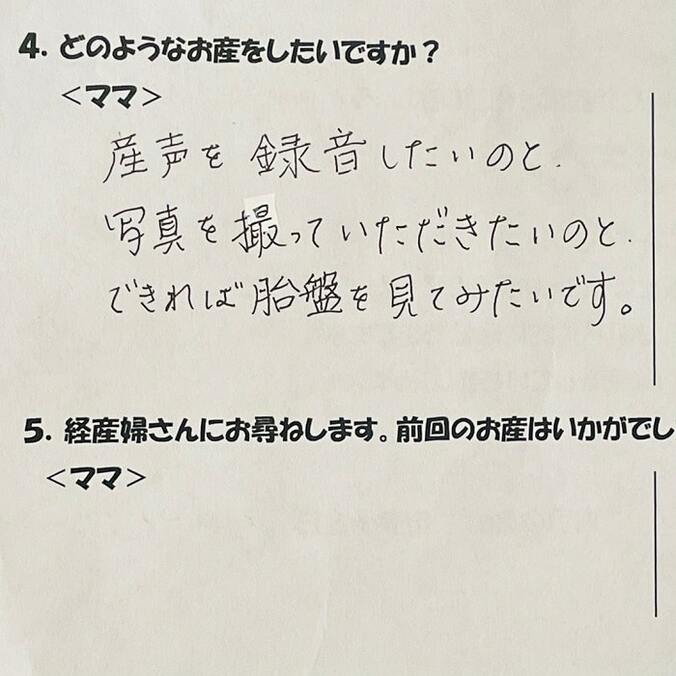 4. どのようなお産をしたいですか？
＜ママ＞
産声を録音したいのと、
写真を撮っていただきたいのと、
できれば胎盤を見てみたいです。
5. 経産婦さんにお尋ねします。前回のお産はいかがでし
＜ママ＞